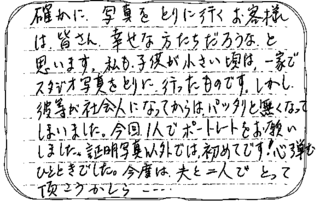 確かに、写真をとりに行くお客様
は、皆さん、幸せな方たちだろうな、と
思います。私も、子供が小さい頃は、一家で
スタジオ写真をとりに、行ったものです。しかし
彼等が社会人になってからは、パッタリと無くなって
しまいました。今回1人でポートレートをお願い
しました。証明写真以外では、初めてです!心弾む
ひとときでした。今度は、夫と二人で とって
頂こうかしら……